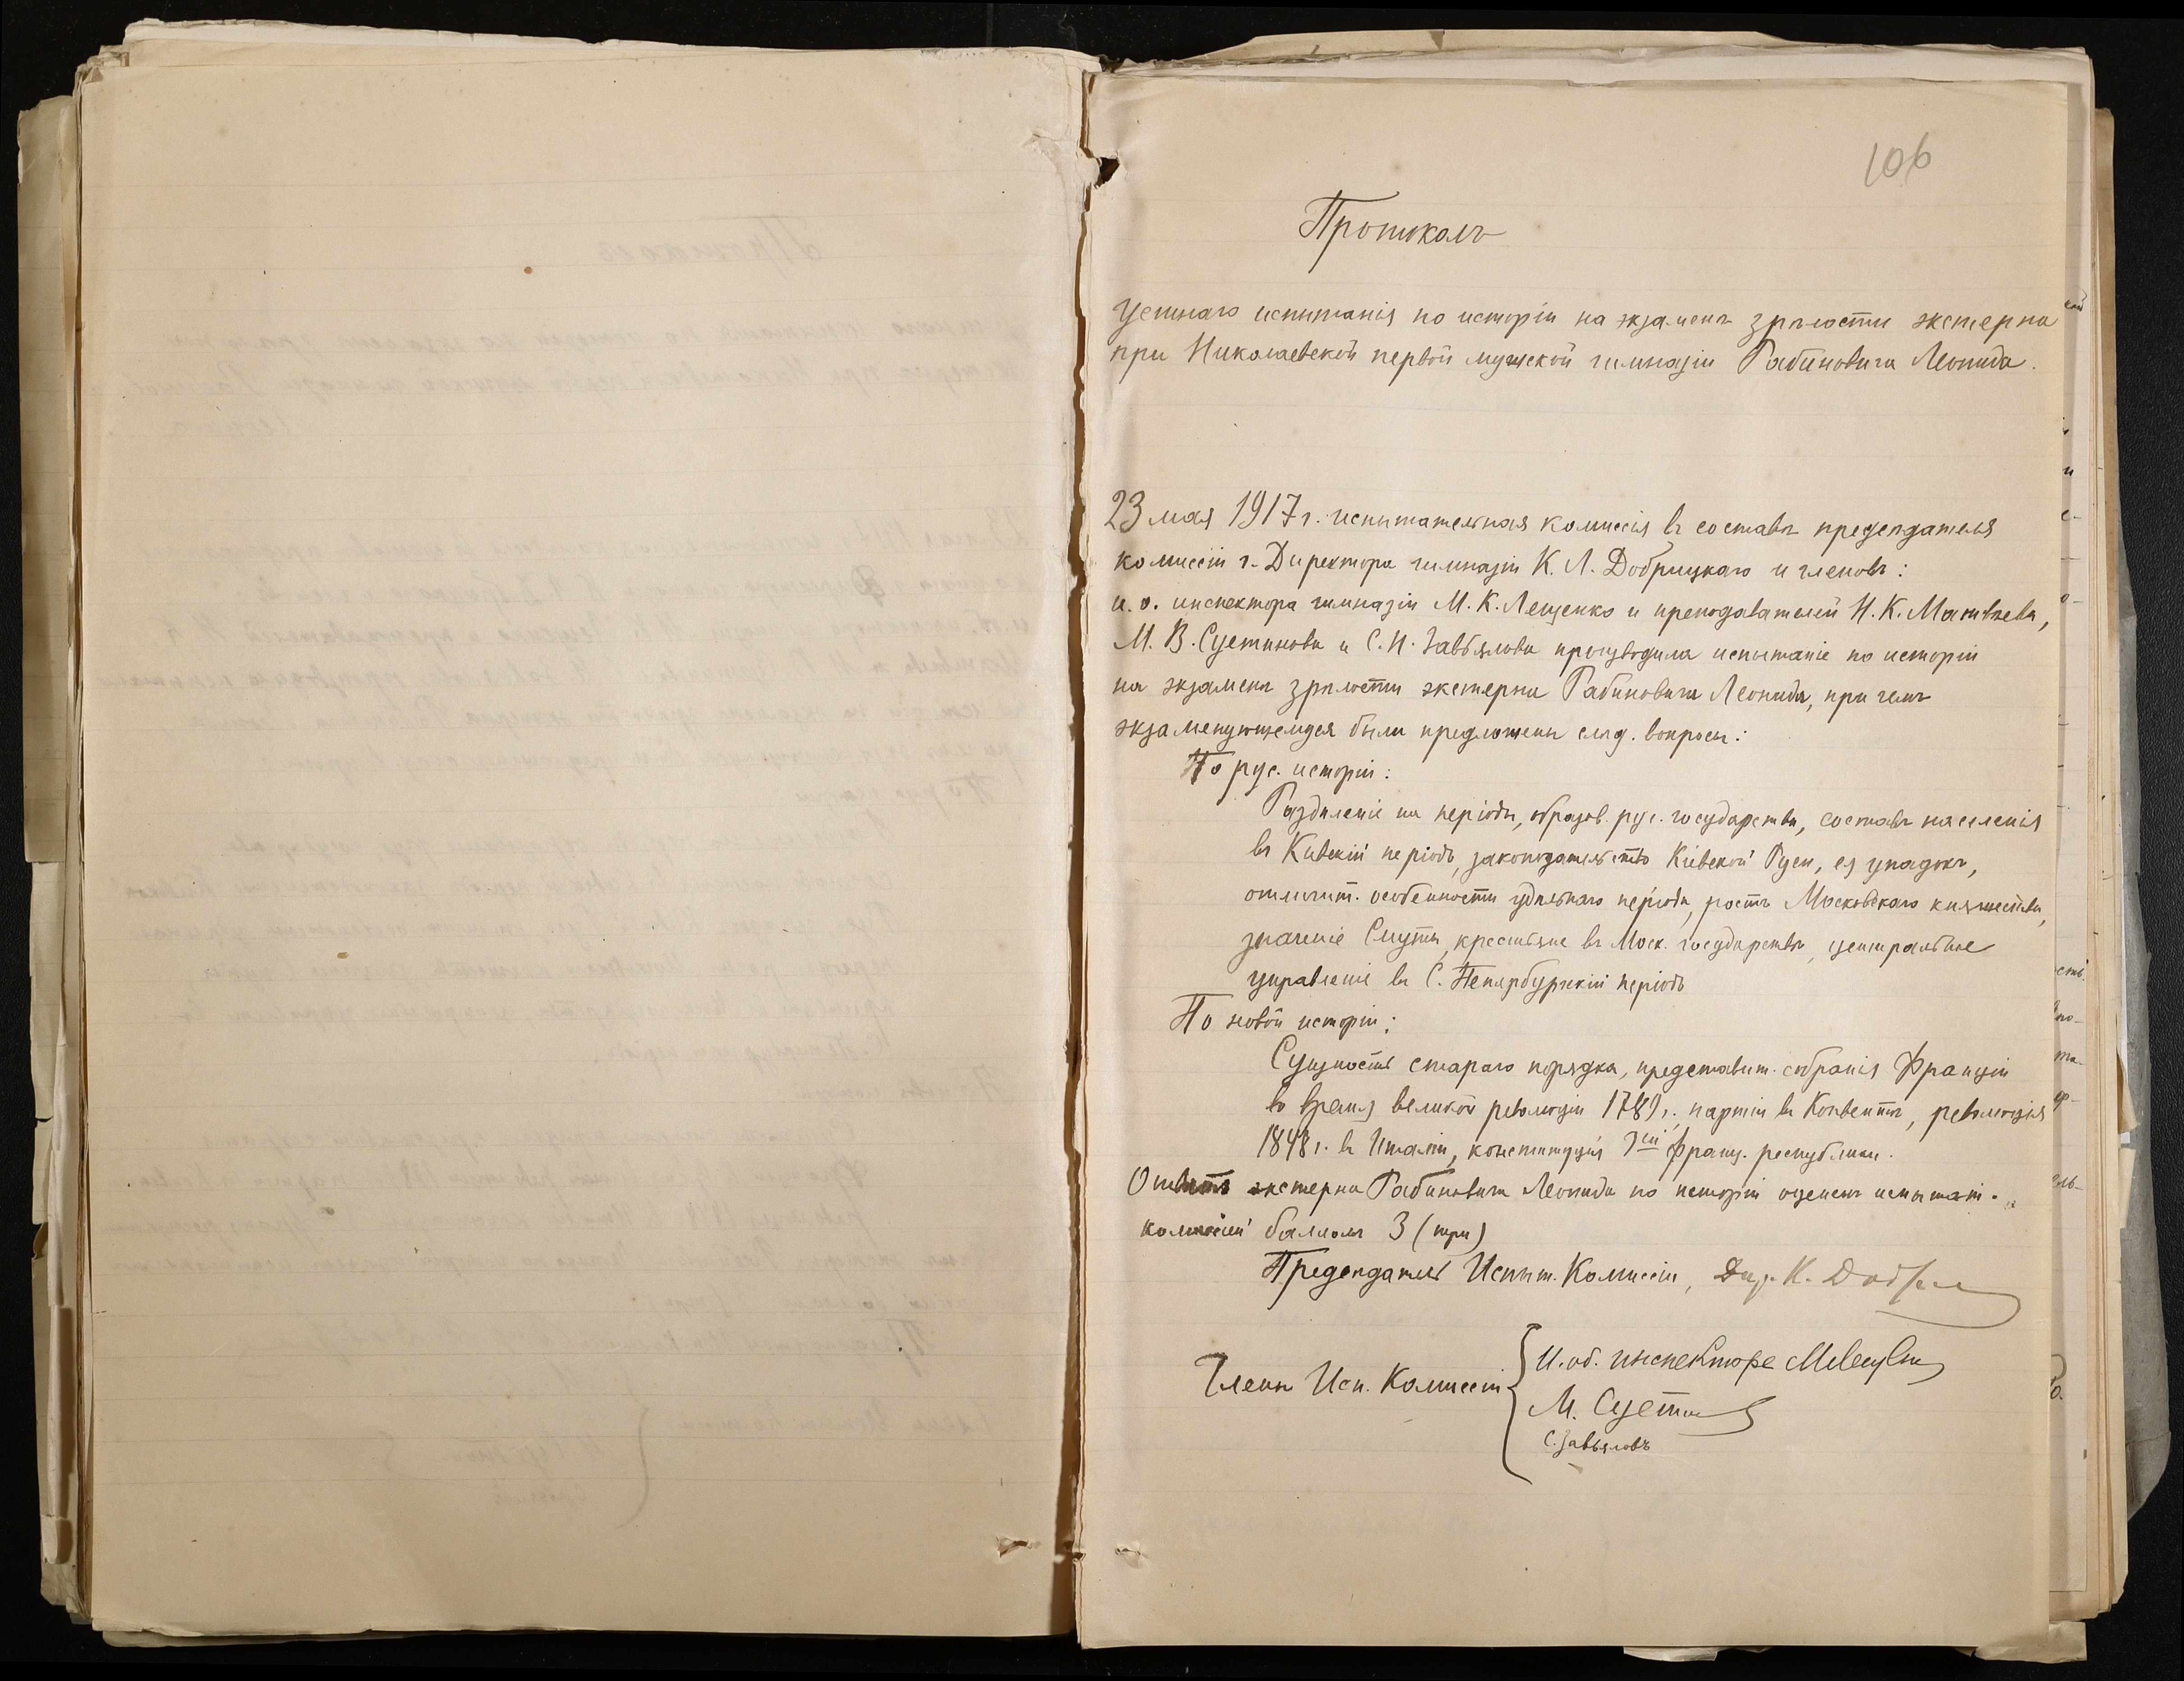 106
Протоколъ
устнаго испытанія по исторіи на экзаменѣ зрѣлости экстерна
при Николаевской первой мужской гимназіи Рабиновича Леонида.
23 мая 1917 г. испытательная комиссія въ составѣ предсѣдателя
комиссіи г. Директора гимназіи К. Л. Добрицкаго и членовъ:
и. о. инспектора гимназіи М. К. Лещенко и преподавателей Н. К. Матвѣева,
М. В. Суетинова и С. И. Завьялова производила испытаніе по исторіи
на экзаменѣ зрѣлости экстерна Рабиновича Леонида, при чемъ
экзаменующемуся были предложены слѣд. вопросы:
По рус. исторіи:
Раздѣленіе на періоды, образов. рус. государства, составъ населенія
въ Кіевскій періодъ, законодательство Кіевской Руси, ея упадокъ,
отличит. особенности удѣльнаго періода, ростъ Московскаго княжества,
значеніе Смуты, крестьяне въ Моск. государствѣ, центральное
управленіе въ С. Петербургскій періодъ
По новой исторіи:
Сущность стараго порядка, представит. собранія Франціи
во время великой революціи 1789 г., партіи въ Конвентѣ, революція
1848 г. въ Италіи, конституція 3ей франц. республики.
Отвѣтъ экстерна Рабиновича Леонида по исторіи оцѣненъ испытат.
комиссіей балломъ 3 (три)
Предсѣдатель Испыт. Комиссіи, Дир. К. Доб
Члены Исп. Комиссіи
И. об. инспектора
М. Суетин
С. Завьяловъ